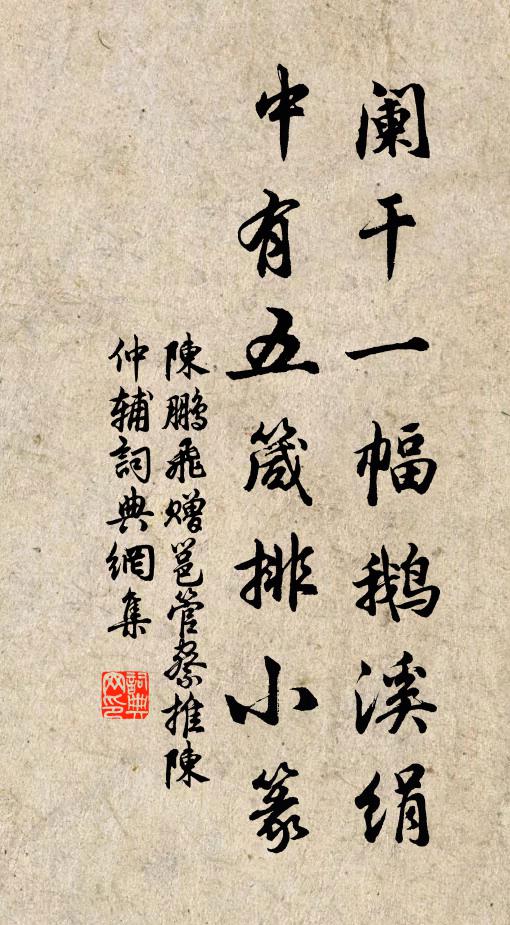 阑干一幅鹅溪绢
中有五箴排小篆
陳鵬飛赠邕管察推陳
仲辅詞典網集
詞典网印